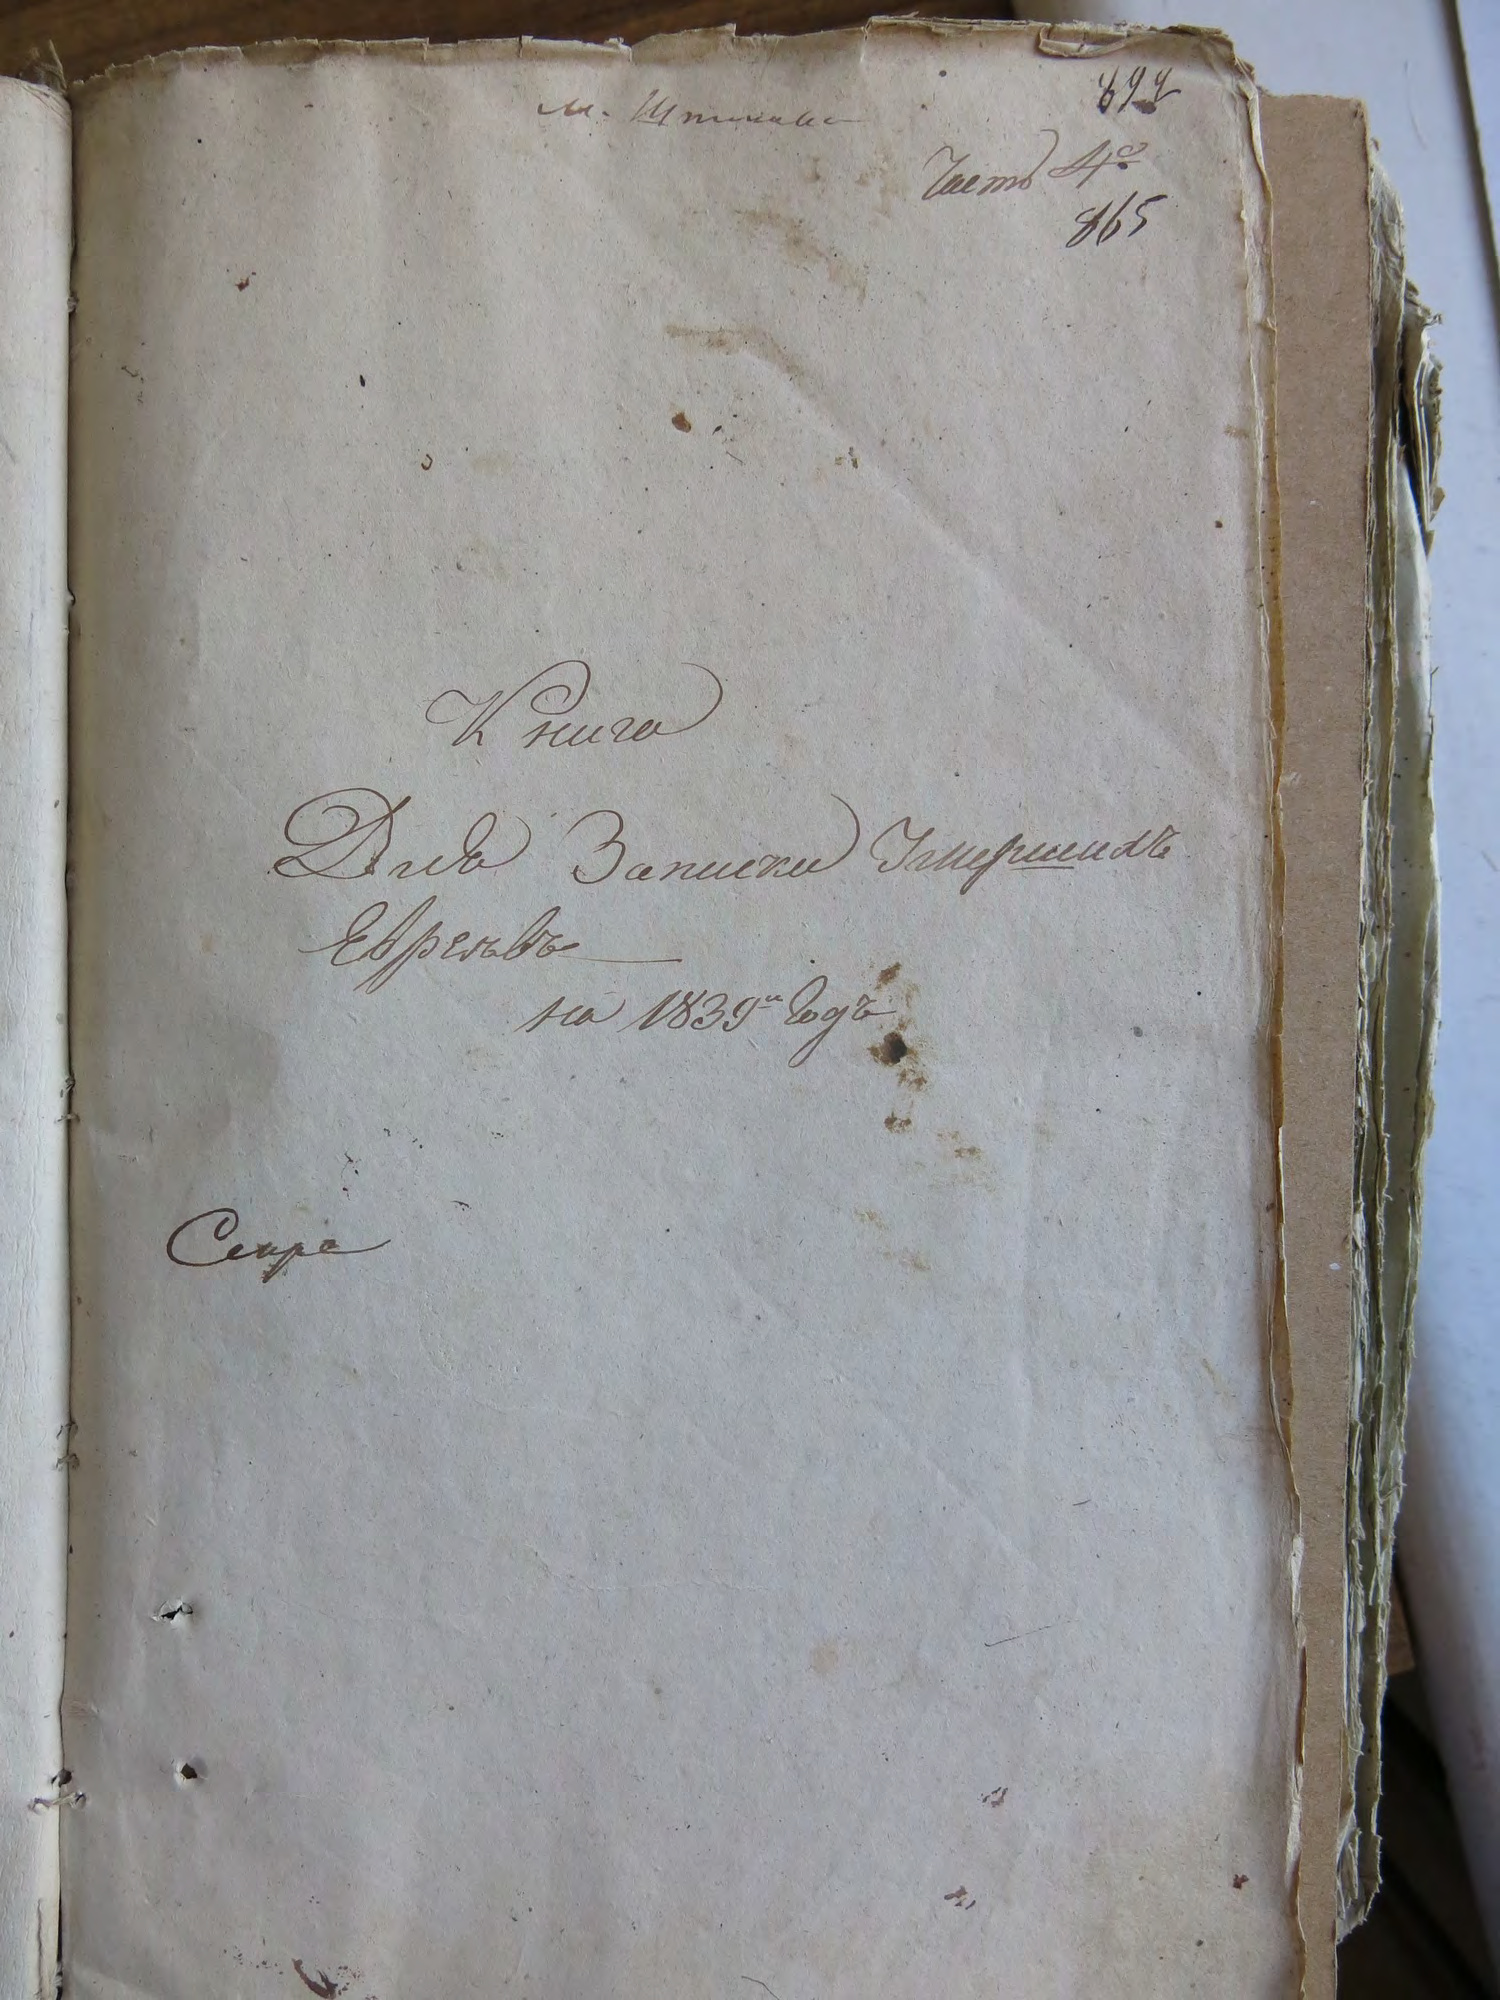 м. Шпикова
899
Часть 4я
865
Книга
Для Записки Умершихъ
Евреевъ
на 1839й Годъ